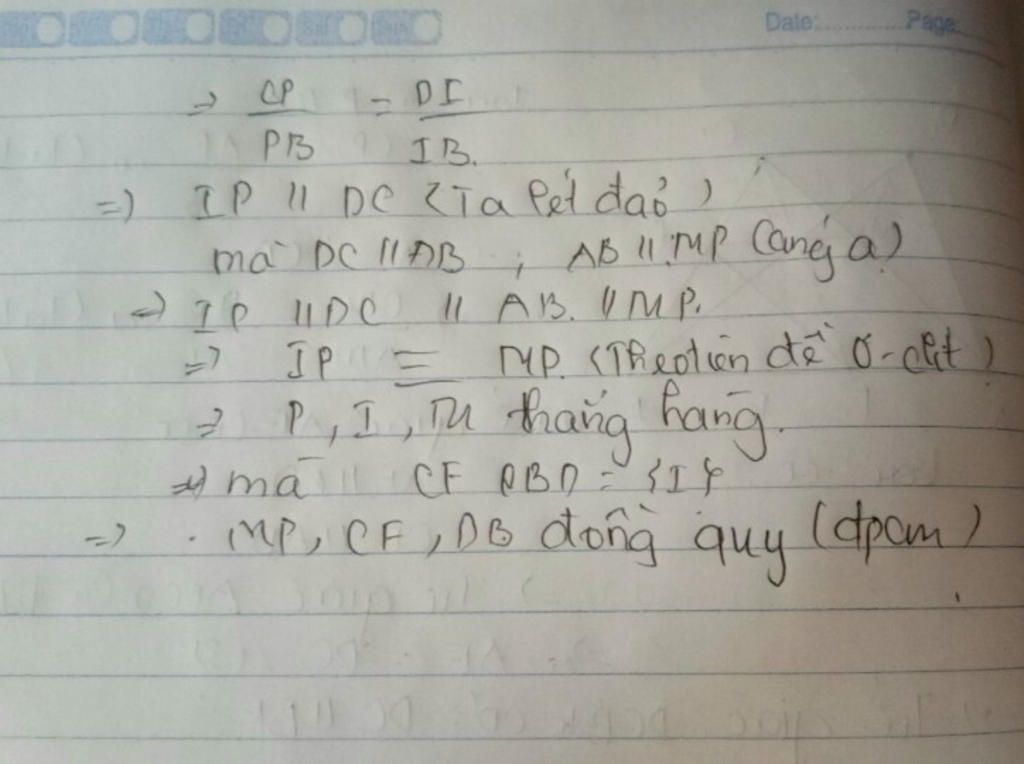 Date:............ Page:
=> CP/PB = DI/IB.
=> IP // DC (Ta lét đảo)
mà DC // AB ; AB // MP (cmý a)
=> IP // DC // AB. // MP.
=> IP ≡ MP. (Theo tiên đề Ơ-clit)
=> P, I, M thẳng hàng.
=> mà CF ∩ BD = {I}
=> . MP, CF, DB đồng quy (đpcm)